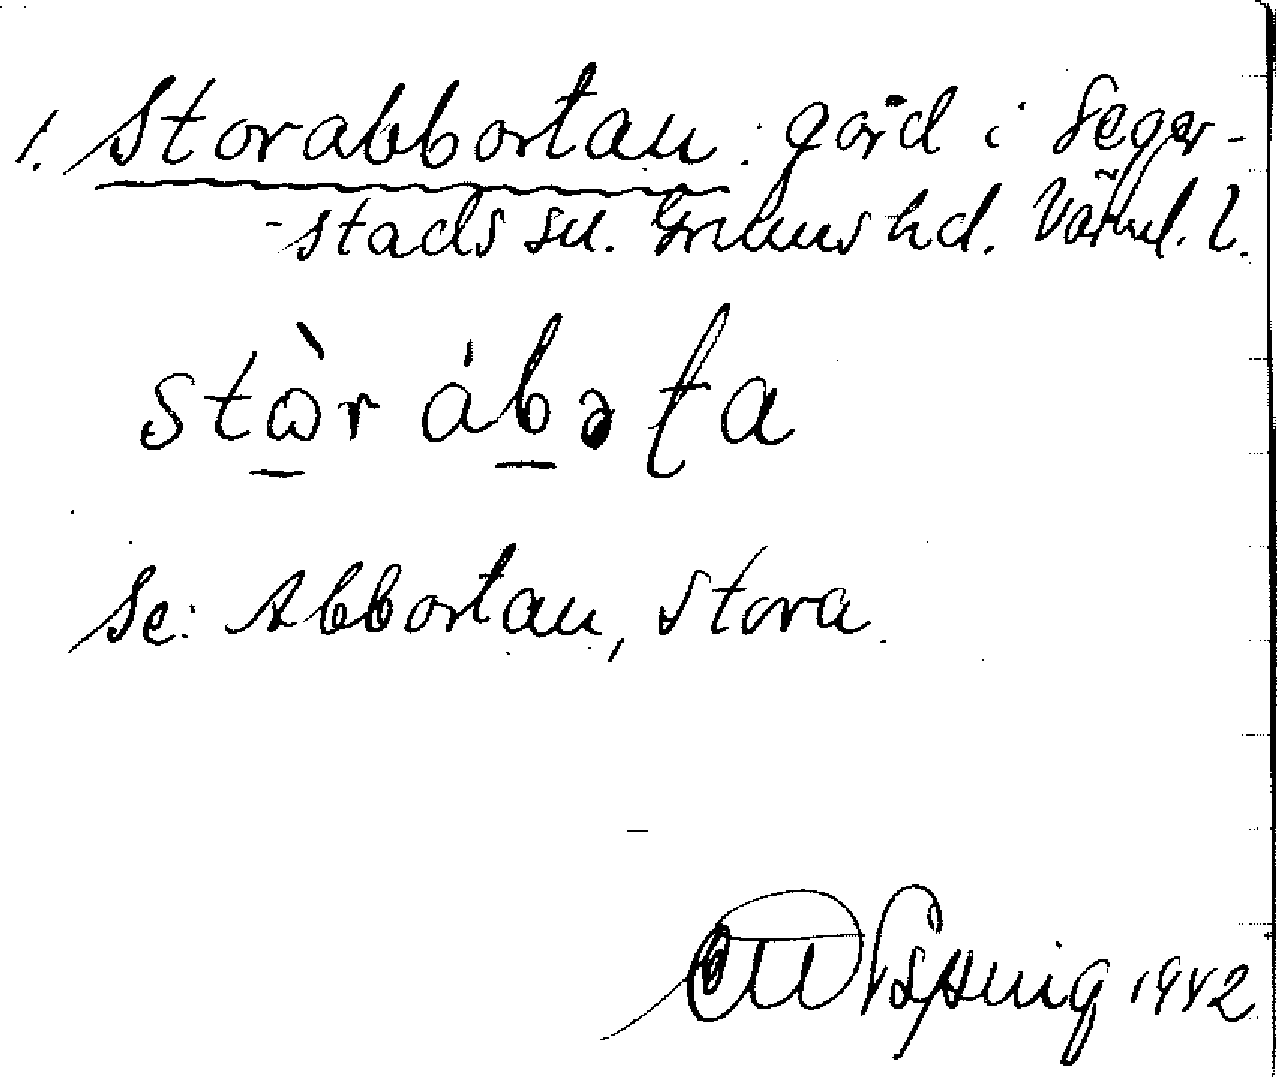 1. Storabbortan: gård i Seger-
-stads sn. Grums hd. Värml. l.
stɷ̀r ábəta
Se: Abbortan, Stora.
1942